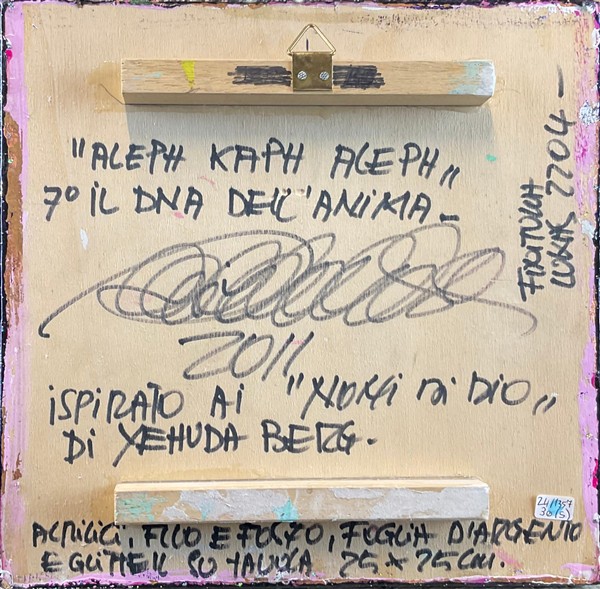 "ALEPH KAPH ALEPH"
7° IL DNA DELL'ANIMA-
2011
ISPIRATO AI "NOMI DI DIO"
DI YEHUDA BERG.
ACRILICI, FILO E, FOGLIA D'ARGENTO
E GLITTER SU TAVOLA 25 x 25 CM.
FIXATURA
LUKAS 2204-
24/1357
30(S)